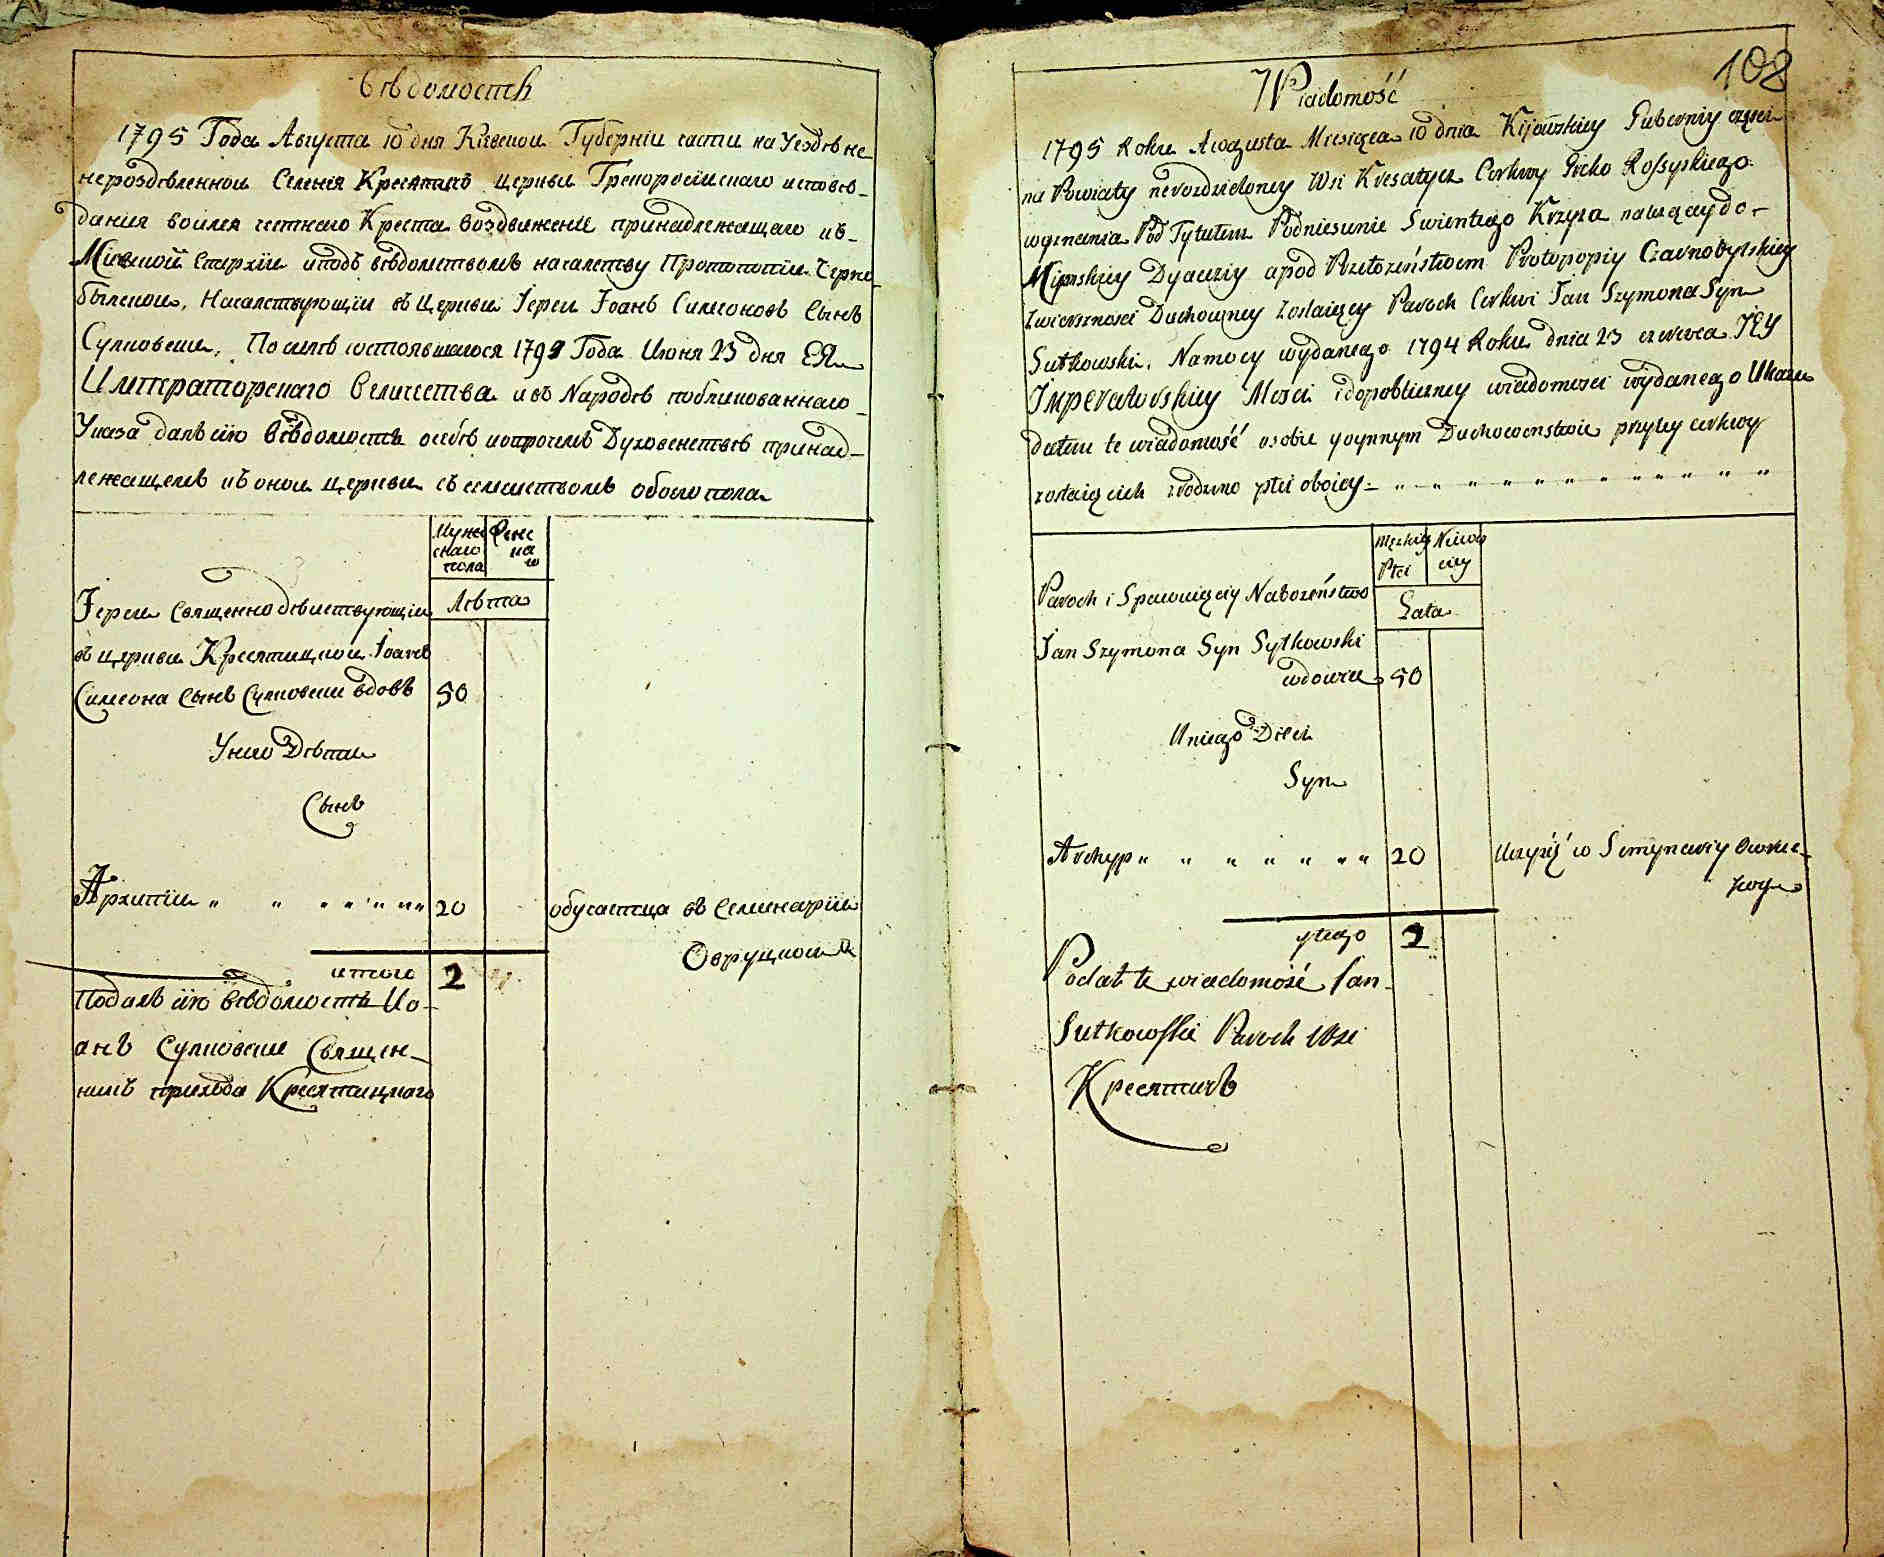 Вѣдомостъ
1795 Года Августа 10 дня Киевской Губернїи части на Уездовъ не
нероздѣленной Селенія Кресятичъ церкви Грекоросїйскаго исповѣ-
данія воимя честнаго Креста воздвиженїе принадлежащаго къ-
Минской Епархїи иподъ вѣдомствомъ началству Протопопїи Черно-
былской, Началствующїй въ Церкви Іерей Іоанъ Симеоновъ Сынъ
Сутковский, По силѣ состоявшагося 1794 Года Июня 23 дня ЕЯ
Императорскаго Величества и въ Народъ публикованнаго
Указа далъ сїю Вѣдомость о себѣ и о протчемъ Духовенствѣ принад-
лежащемъ къ оной церкви съ семействомъ обоего пола
Мужескаго пола
Женскаго
Лѣта
Іерей Священнодѣйствующїй
въ церкви Кресятицкой Іоанъ
Симеона Сынъ Сутковский вдовъ 50
У него Дѣти
Сынъ
Архипїй " " " " " " " 20 обучаетца въ Семинарїи
Овруцкой
итого 2
Подалъ сїю вѣдомость Ио-
анъ Сутковский Священ-
никъ прихода Кресятицкаго
108
Wiadomość
1795 Roku Awgusta Miesięca 10 dnia Kijowskiey Guberniy części
na Powiaty nerozdzieloney Wsi Kresatycz Cerkwy Greko Rossyskiego
wyznania Pod Tytułem Podniesienie Swientego Krzyża należącey do-
Miynskiey Dyaeczyi a pod Przełożeństwem Protopopiy Czarnobylskiey
Zwierzności Duchowney zostaięcy Paroch Cerkwi Jan Szymona Syn
Sutkowski. Namocy wydanego 1794 Roku dnia 23 czerwca JEY
Imperatorskiey Mości i dopubliczney wiadomości wydanego Ukazu
dałem te wiadomość osobie y oynnym Duchowenstwie przytey cerkwy
zostaięcich zrodzino płci oboiey - " " " " " " " " " " "
Męzkiey Płci
Niewiesciey
Lata
Paroch i Sprawuięciy Nabożeństwo
Jan Szymona Syn Sytkowski
wdowiec 50
Uniego Dieci
Syn
Archyp " " " " " " " 20 Uczyśię w Semynariy Owruc-
koy
ytego 2
Podał te wiadomość Jan
Sutkowski Paroch Wsi
Кресятичъ